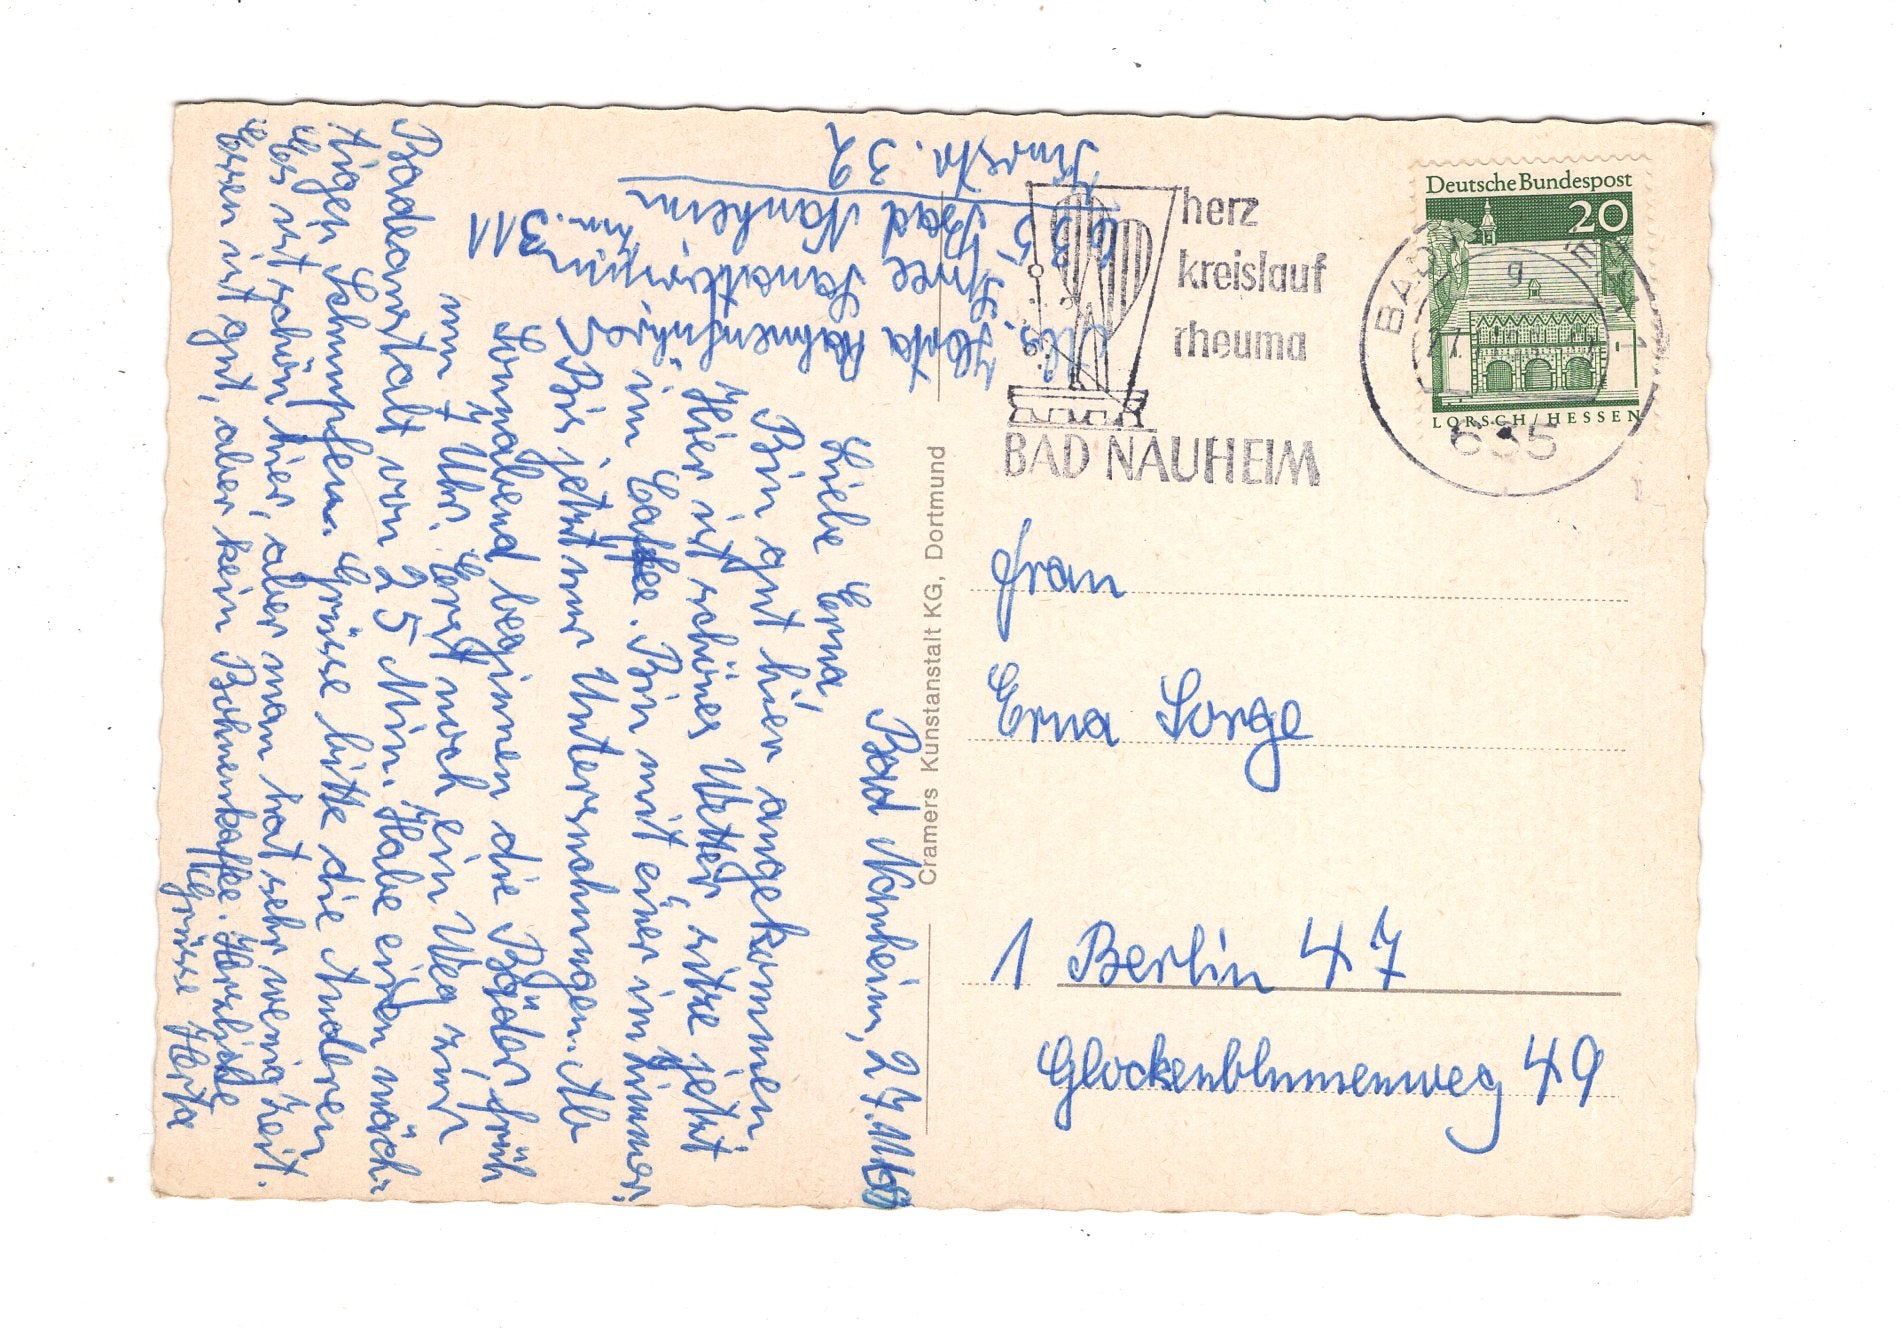 Bad Nauheim, 27.11.68
Liebe Erna,
Bin gut hier angekommen
Hier ist schönes Wetter, sitze jetzt
im Caffee. Bin mit einer im Zimmer.
Bis jetzt nur Untersuchungen. Ab
Sonnabend beginnen die Bäder, früh
um 7 Uhr. Erst noch ein Weg zur
Badeanstalt von 25 Min. Habe einen mäch-
tigen Schnupfen. Grüsse bitte die Anderen
Es ist schön hier, aber man hat sehr wenig Zeit.
Essen ist gut, aber kein Bohnenkaffee. Herzliche
Grüsse Herta
Abs. Herta
Sanatorium
Zim. 311
635 Bad Nauheim
Kurstr. 32
Cramers Kunstanstalt KG, Dortmund
herz
kreislauf
rheuma
BAD NAUHEIM
Deutsche Bundespost
20
LORSCH/HESSEN
BAD
g
27.
635
Frau
Erna Sorge
1 Berlin 47
Glockenblumenweg 49